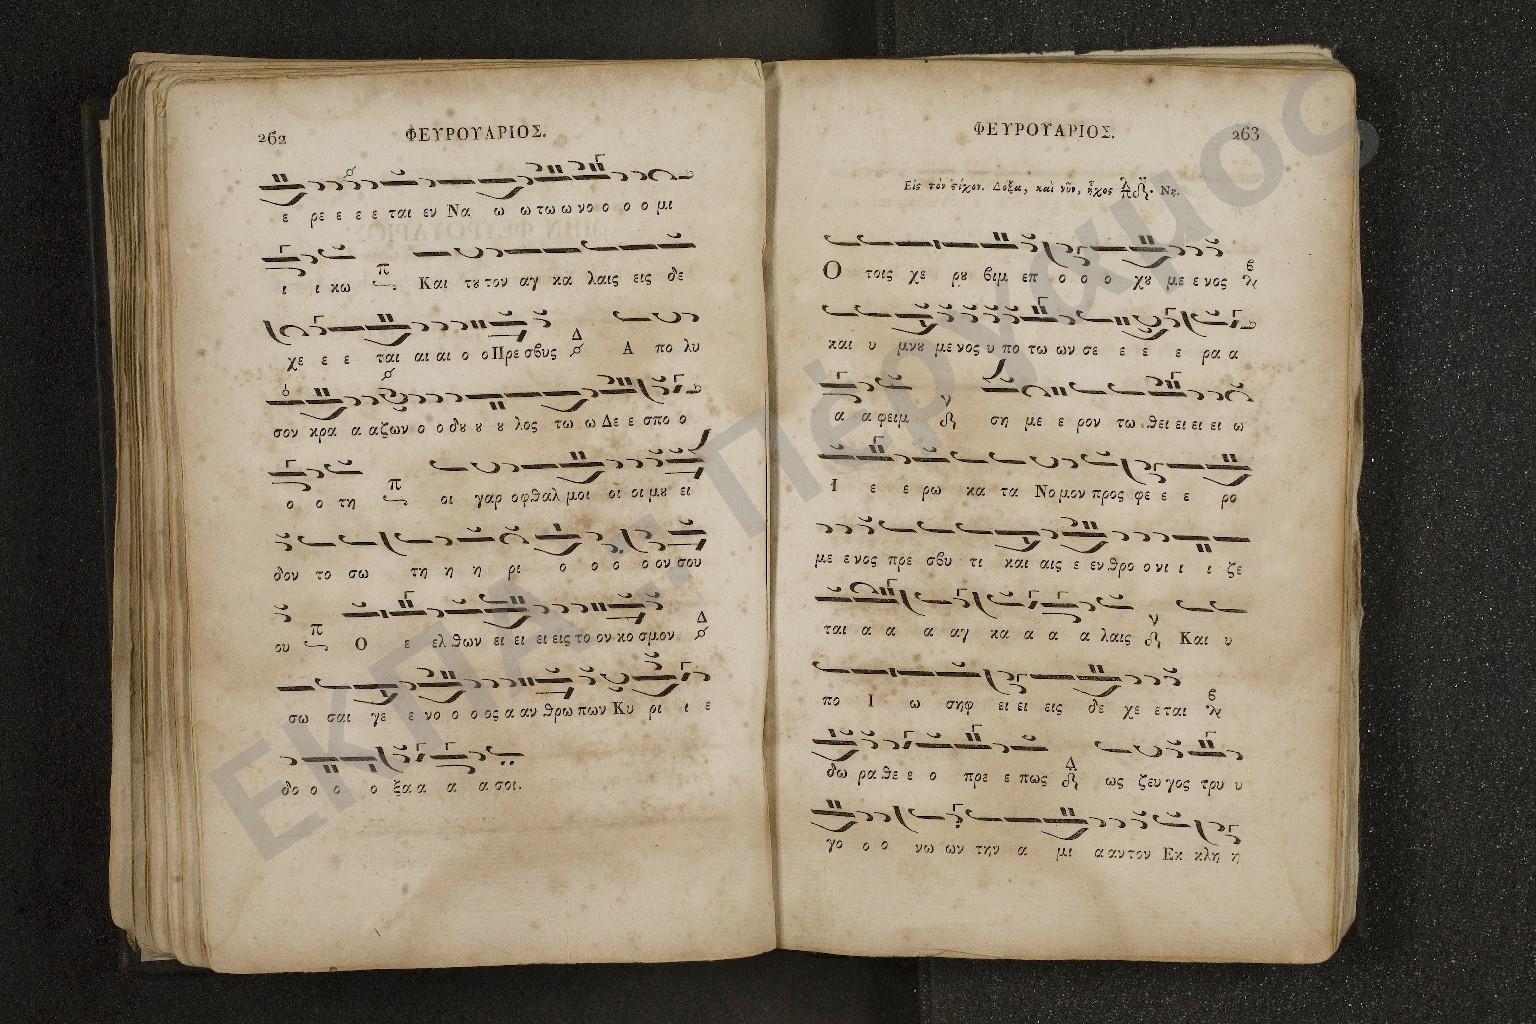 262
ΦΕΥΡΟΥΑΡΙΟΣ.
ε ρε ε ε ε ται εν Να ω ω τω ω νο ο ο ο μι
ι ι κω π Και τȣ τον αγ κα λαις εις δε
χε ε ε ται αι αι ο ο Πρε σβυς Δ Α πο λυ
σον κρα α α ζων ο ο δȣ ȣ ȣ λος τω ω Δε ε σπο ο
ο ο τη π οι γαρ οφθαλ μοι οι οι μȣ ει
δον το σω τη η η ρι ο ο ο ο ον σου
ου π Ο ε ελ θων ει ει ει εις το ον κο σμον Δ
σω σαι γε ε νο ο ο ος α αν θρω πων Κυ ρι ι ε
δο ο ο ο ξα α α α σοι.
ΦΕΥΡΟΥΑΡΙΟΣ.
263
Εἰς τὸν στίχον. Δόξα, καὶ νῦν, ἦχος Νη.
Ο τοις χε ρȣ βιμ επ ο ο ο χȣ με ε νος
και υ μνȣ με νος υ πο τω ων σε ε ε ε ρα α
α α φειμ ση με ε ρον τω θει ει ει ει ω
Ι ε ε ρω κα τα Νο μον προς φε ε ε ρο
με ε νος πρε σβυ τι και αις ε εν θρο ο νι ι ι ζε
ται α α α αγ κα α α α λαις Και υ
πο Ι ω σηφ ει ει εις δε χε ε ται
δω ρα θε ε ο πρε ε πως ως ζευ γος τρυ υ
γο ο ο νω ων την α μι α αν τον Εκ κλη η
ΕΚΠΑ // Πέργαμος